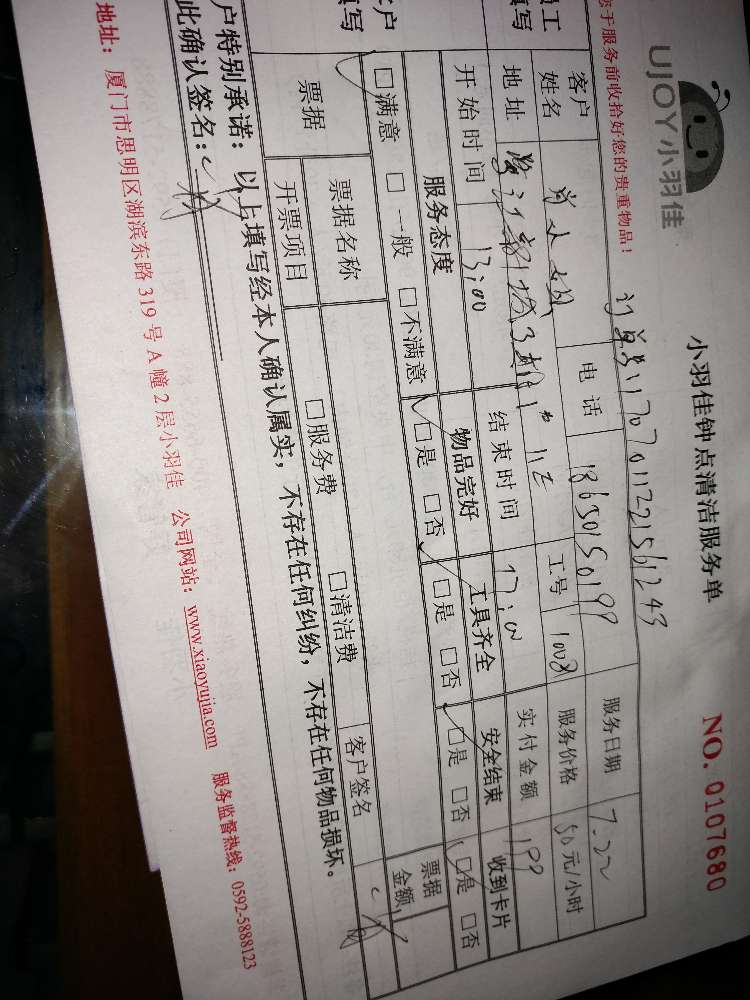 UJOY小羽佳
小羽佳钟点清洁服务单
NO. 0107680
您于服务前收拾好您的贵重物品！
订单号11707011221561243
服务日期 7.22
客户姓名 电话 18650150199 服务价格 50元/小时
地址 工号 实付金额 199
开始时间 13:00 结束时间 17:00
服务态度 物品完好 工具齐全 安全结束 收到卡片
□满意 □一般 □不满意 □是 □否 □是 □否 □是 □否 □是 □否
票据 票据名称 票据金额
开票项目 □服务费 □清洁费 客户签名
户特别承诺：以上填写经本人确认属实，不存在任何纠纷，不存在任何物品损坏。
此确认签名：
地址：厦门市思明区湖滨东路 319 号 A 幢 2 层小羽佳 公司网站：www.xiaoyujia.com 服务监督热线：0592-5888123